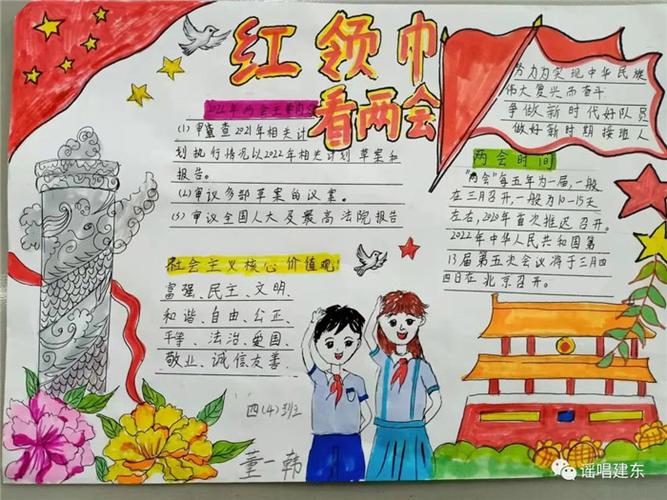 红领巾
看两会
2022年两会主要内容
(1)审查2021年相关计
划执行情况以2022年相关计划草案和
报告。
(2)审议多部草案的议案。
(3)审议全国人大及最高法院报告
社会主义核心价值观:
富强、民主、文明、
和谐、自由、公正、
平等、法治、爱国、
敬业、诚信友善
四(4)班
董一韩
努力为实现中华民族
伟大复兴而奋斗
争做新时代好队员
做好新时期接班人
两会时间
"两会"每五年为一届,一般
在三月召开,一般为10-15天
左右,2020年首次推迟召开。
2022年中华人民共和国第
13届第五次会议将于三月四
四日在北京召开。
谣唱建东